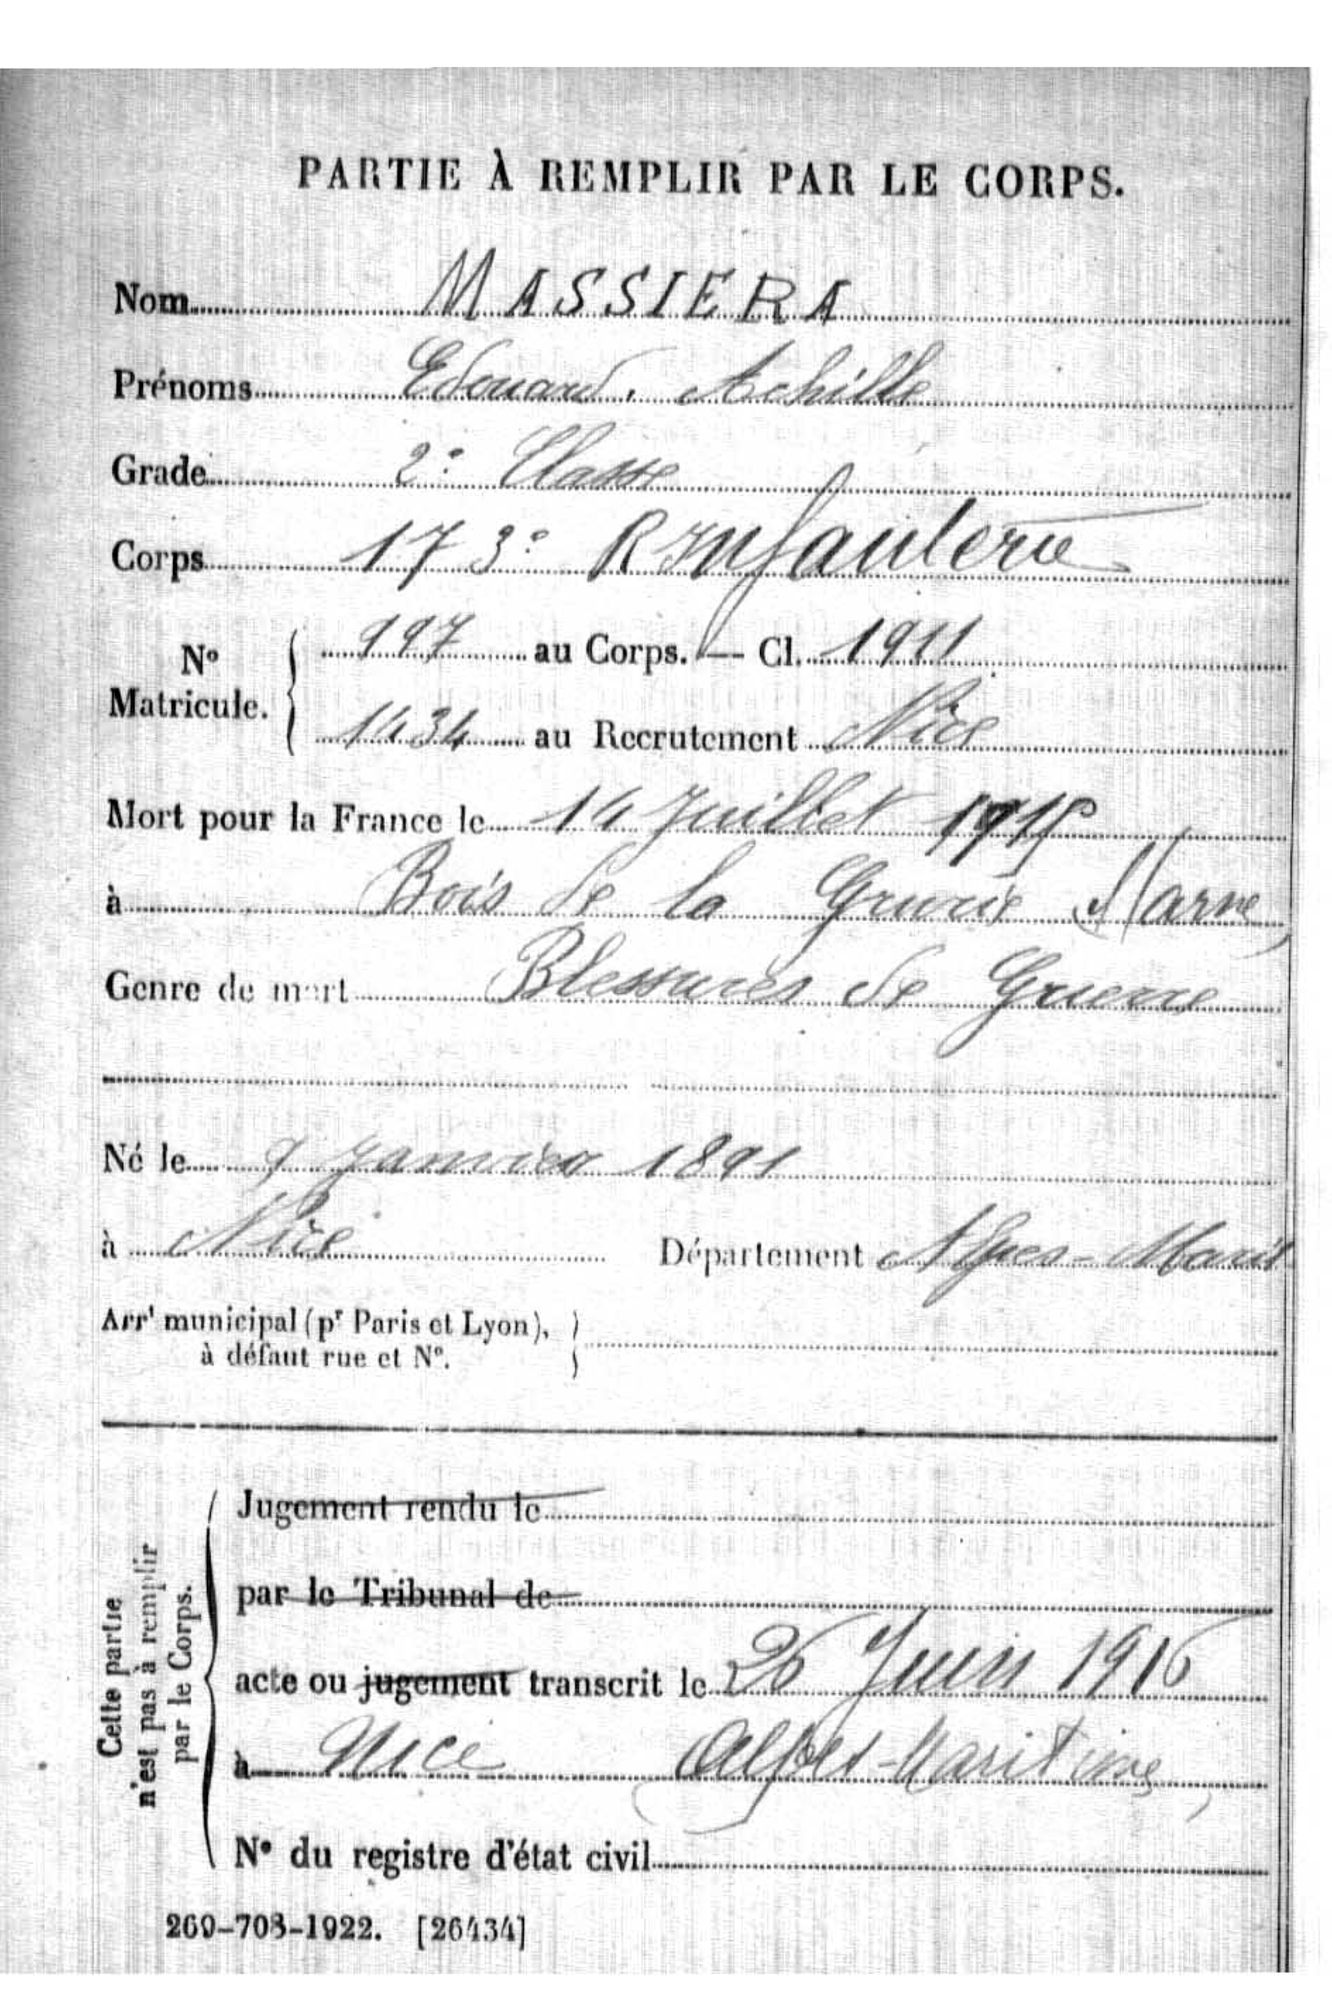 PARTIE À REMPLIR PAR LE CORPS.
Nom MASSIERA
Prénoms Edouard, Achille
Grade 2e Classe
Corps 173e R Infanterie
No Matricule. 997 au Corps. — Cl. 1911
1434 au Recrutement Nice
Mort pour la France le 14 Juillet 1915
à Bois de la Grurie Marne
Genre de mort Blessures de Guerre
Né le 9 Janvier 1891
à Nice Département Alpes-Marit
Arrt municipal (pr Paris et Lyon),
à défaut rue et No.
Cette partie
n'est pas à remplir
par le Corps.
Jugement rendu le
par le Tribunal de
acte ou jugement transcrit le 26 Juin 1916
à Nice (Alpes-Maritimes)
No du registre d'état civil
269-708-1922. [26434]